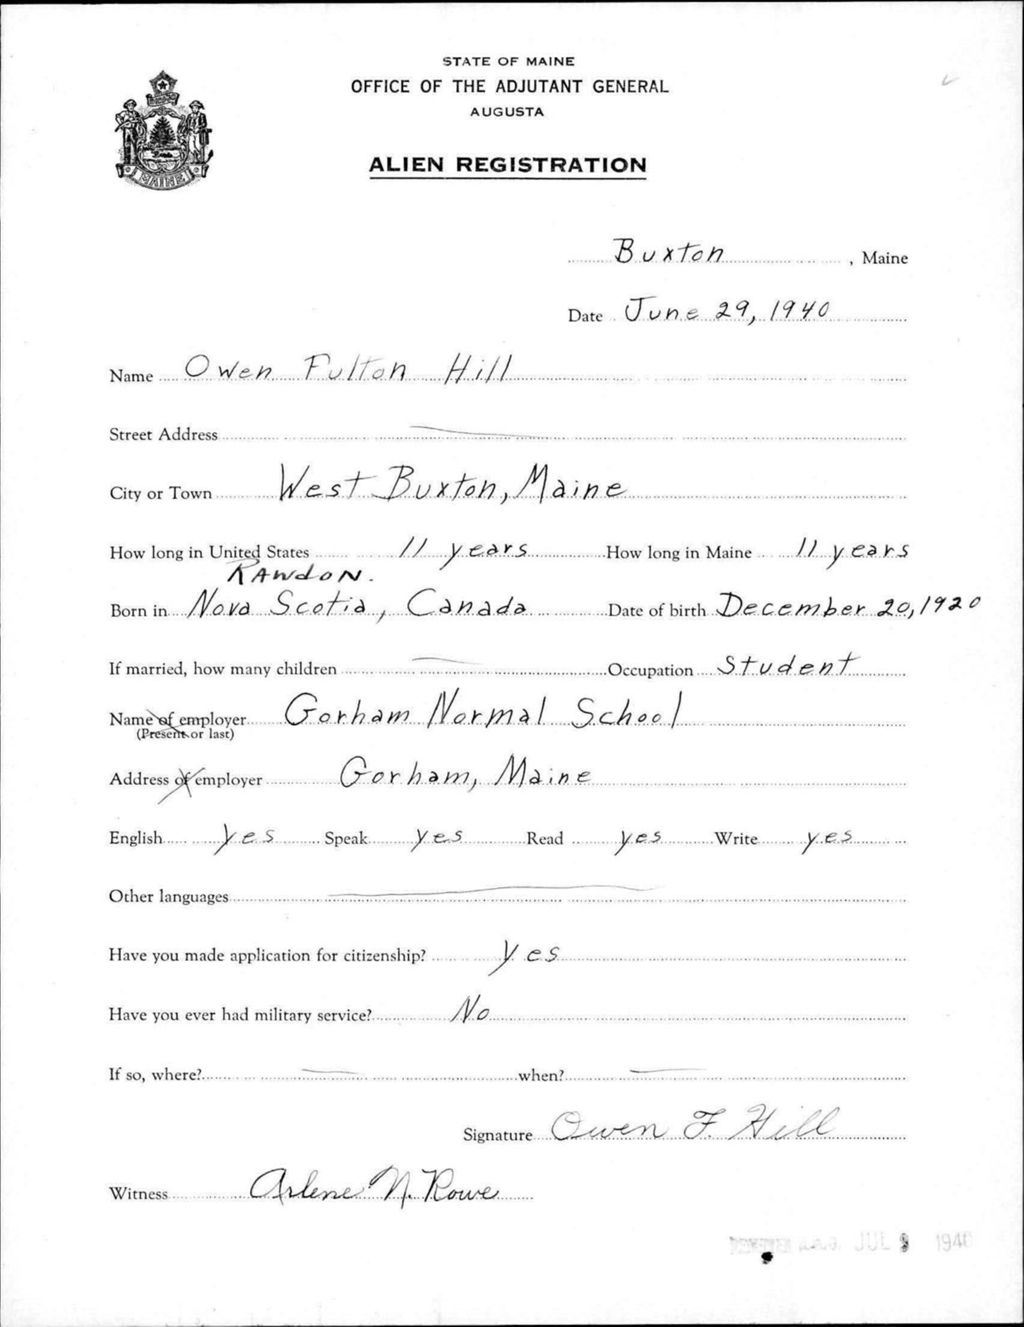 STATE OF MAINE
OFFICE OF THE ADJUTANT GENERAL
AUGUSTA
ALIEN REGISTRATION
MAINE
Buxton, Maine
Date June 29, 1940
Name Owen Fulton Hill
Street Address
City or Town West Buxton, Maine
How long in United States 11 years How long in Maine 11 years
RAWdON.
Born in Nova Scotia, Canada Date of birth December 20, 1920
If married, how many children Occupation Student
Name of employer Gorham Normal School
(Present or last)
Address of employer Gorham, Maine
English yes Speak yes Read yes Write yes
Other languages
Have you made application for citizenship? yes
Have you ever had military service? No
If so, where? when?
Signature Owen F. Hill
Witness Arlene N. Rowe
JUL 1940